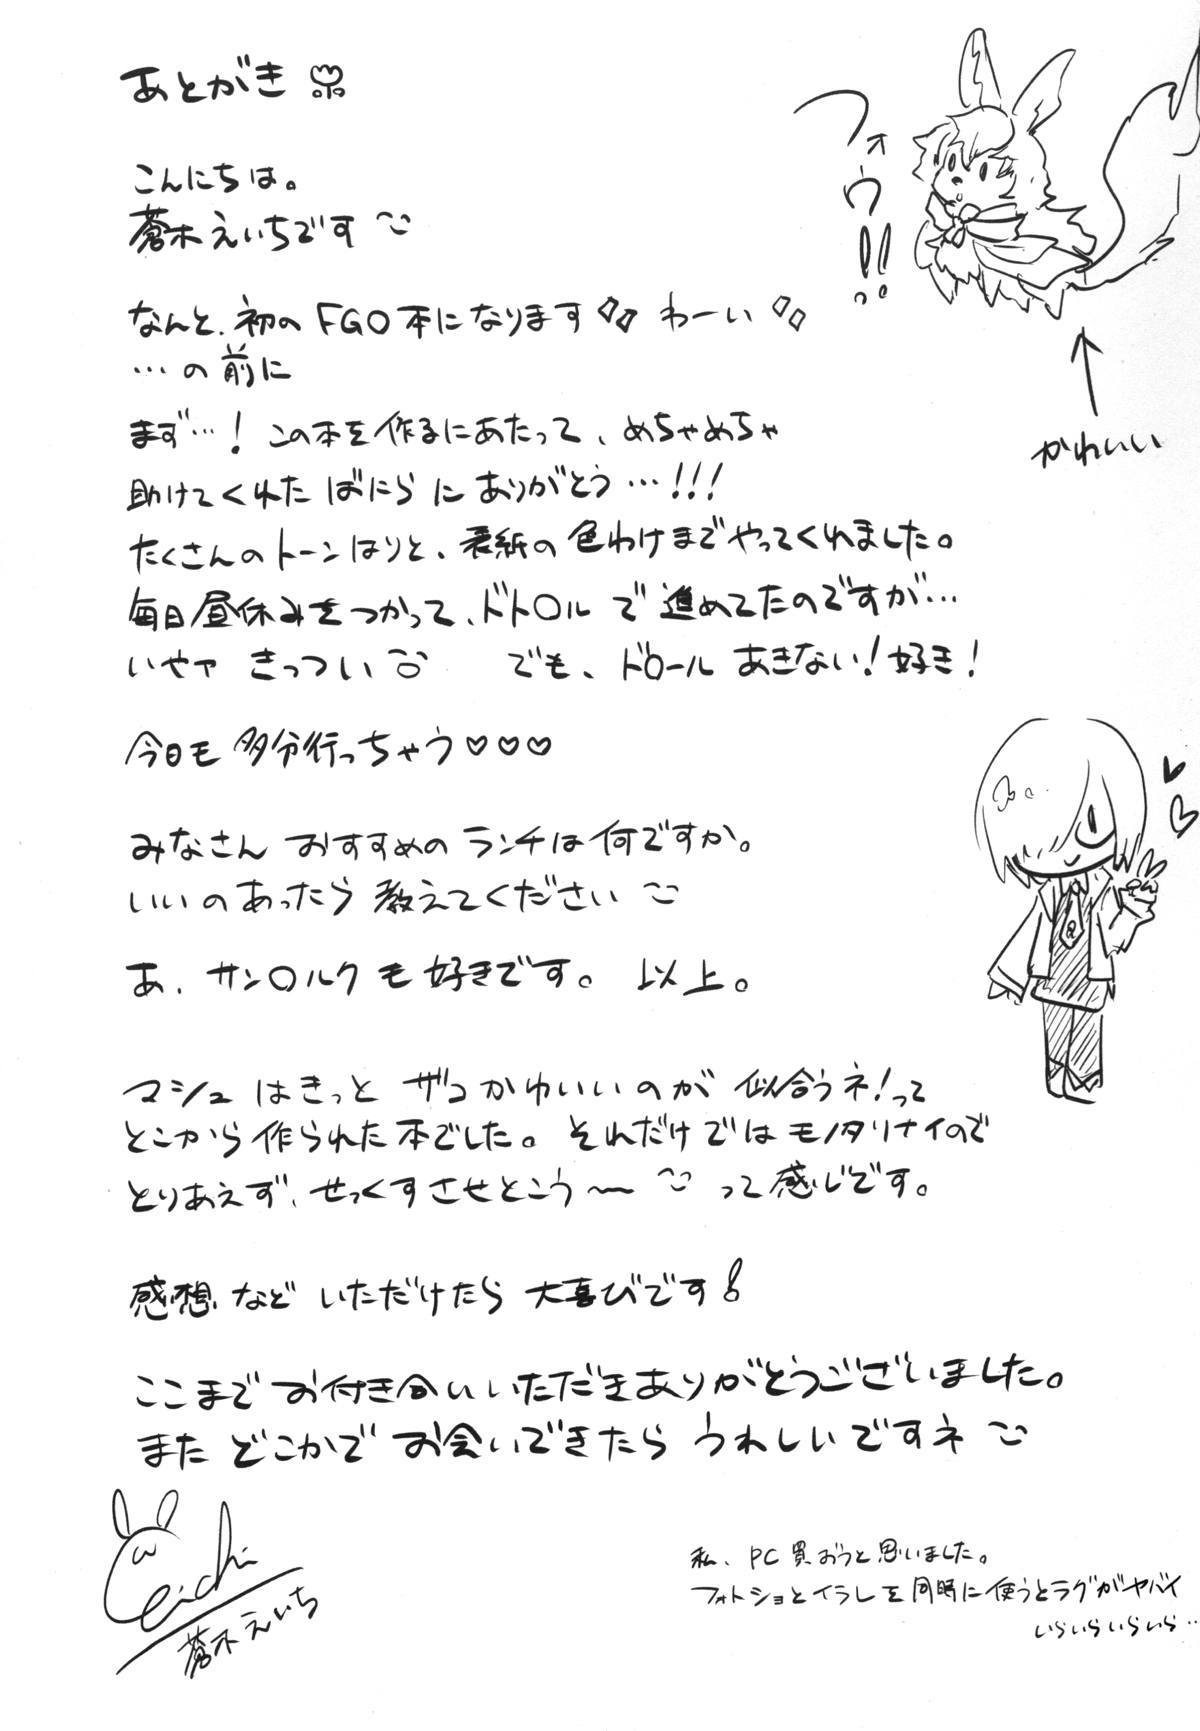 あとがき
こんにちは。
蒼木えいちです
なんと、初のFGO本になります わーい
…の前に
まず…! この本を作るにあたって、めちゃめちゃ
助けてくれた ばにら に ありがとう…!!!
たくさんのトーンはりと、表紙の色わけまでやってくれました。
毎日昼休みをつかって、ドト〇ルで進めてたのですが…
いやァ きっつい でも、ド〇ール あきない!好き!
今日も多分行っちゃう♡♡♡
みなさん おすすめのランチは何ですか。
いいのあったら教えてください
あ、サン〇ルクも好きです。 以上。
マシュはきっと ザコかわいいのが 似合うネ!って
とこから作られた本でした。それだけではモノタリナイので
とりあえず、せっくすさせとこう〜 って感じです。
感想など いただけたら 大喜びです!
ここまでお付き合いいただきありがとうございました。
また どこかで お会いできたら うれしいですネ
フォウ!!
かわいい
eichi
蒼木えいち
私、PC買おうと思いました。
フォトショとイラレを同時に使うとラグがヤバイ
いらいらいらいら…